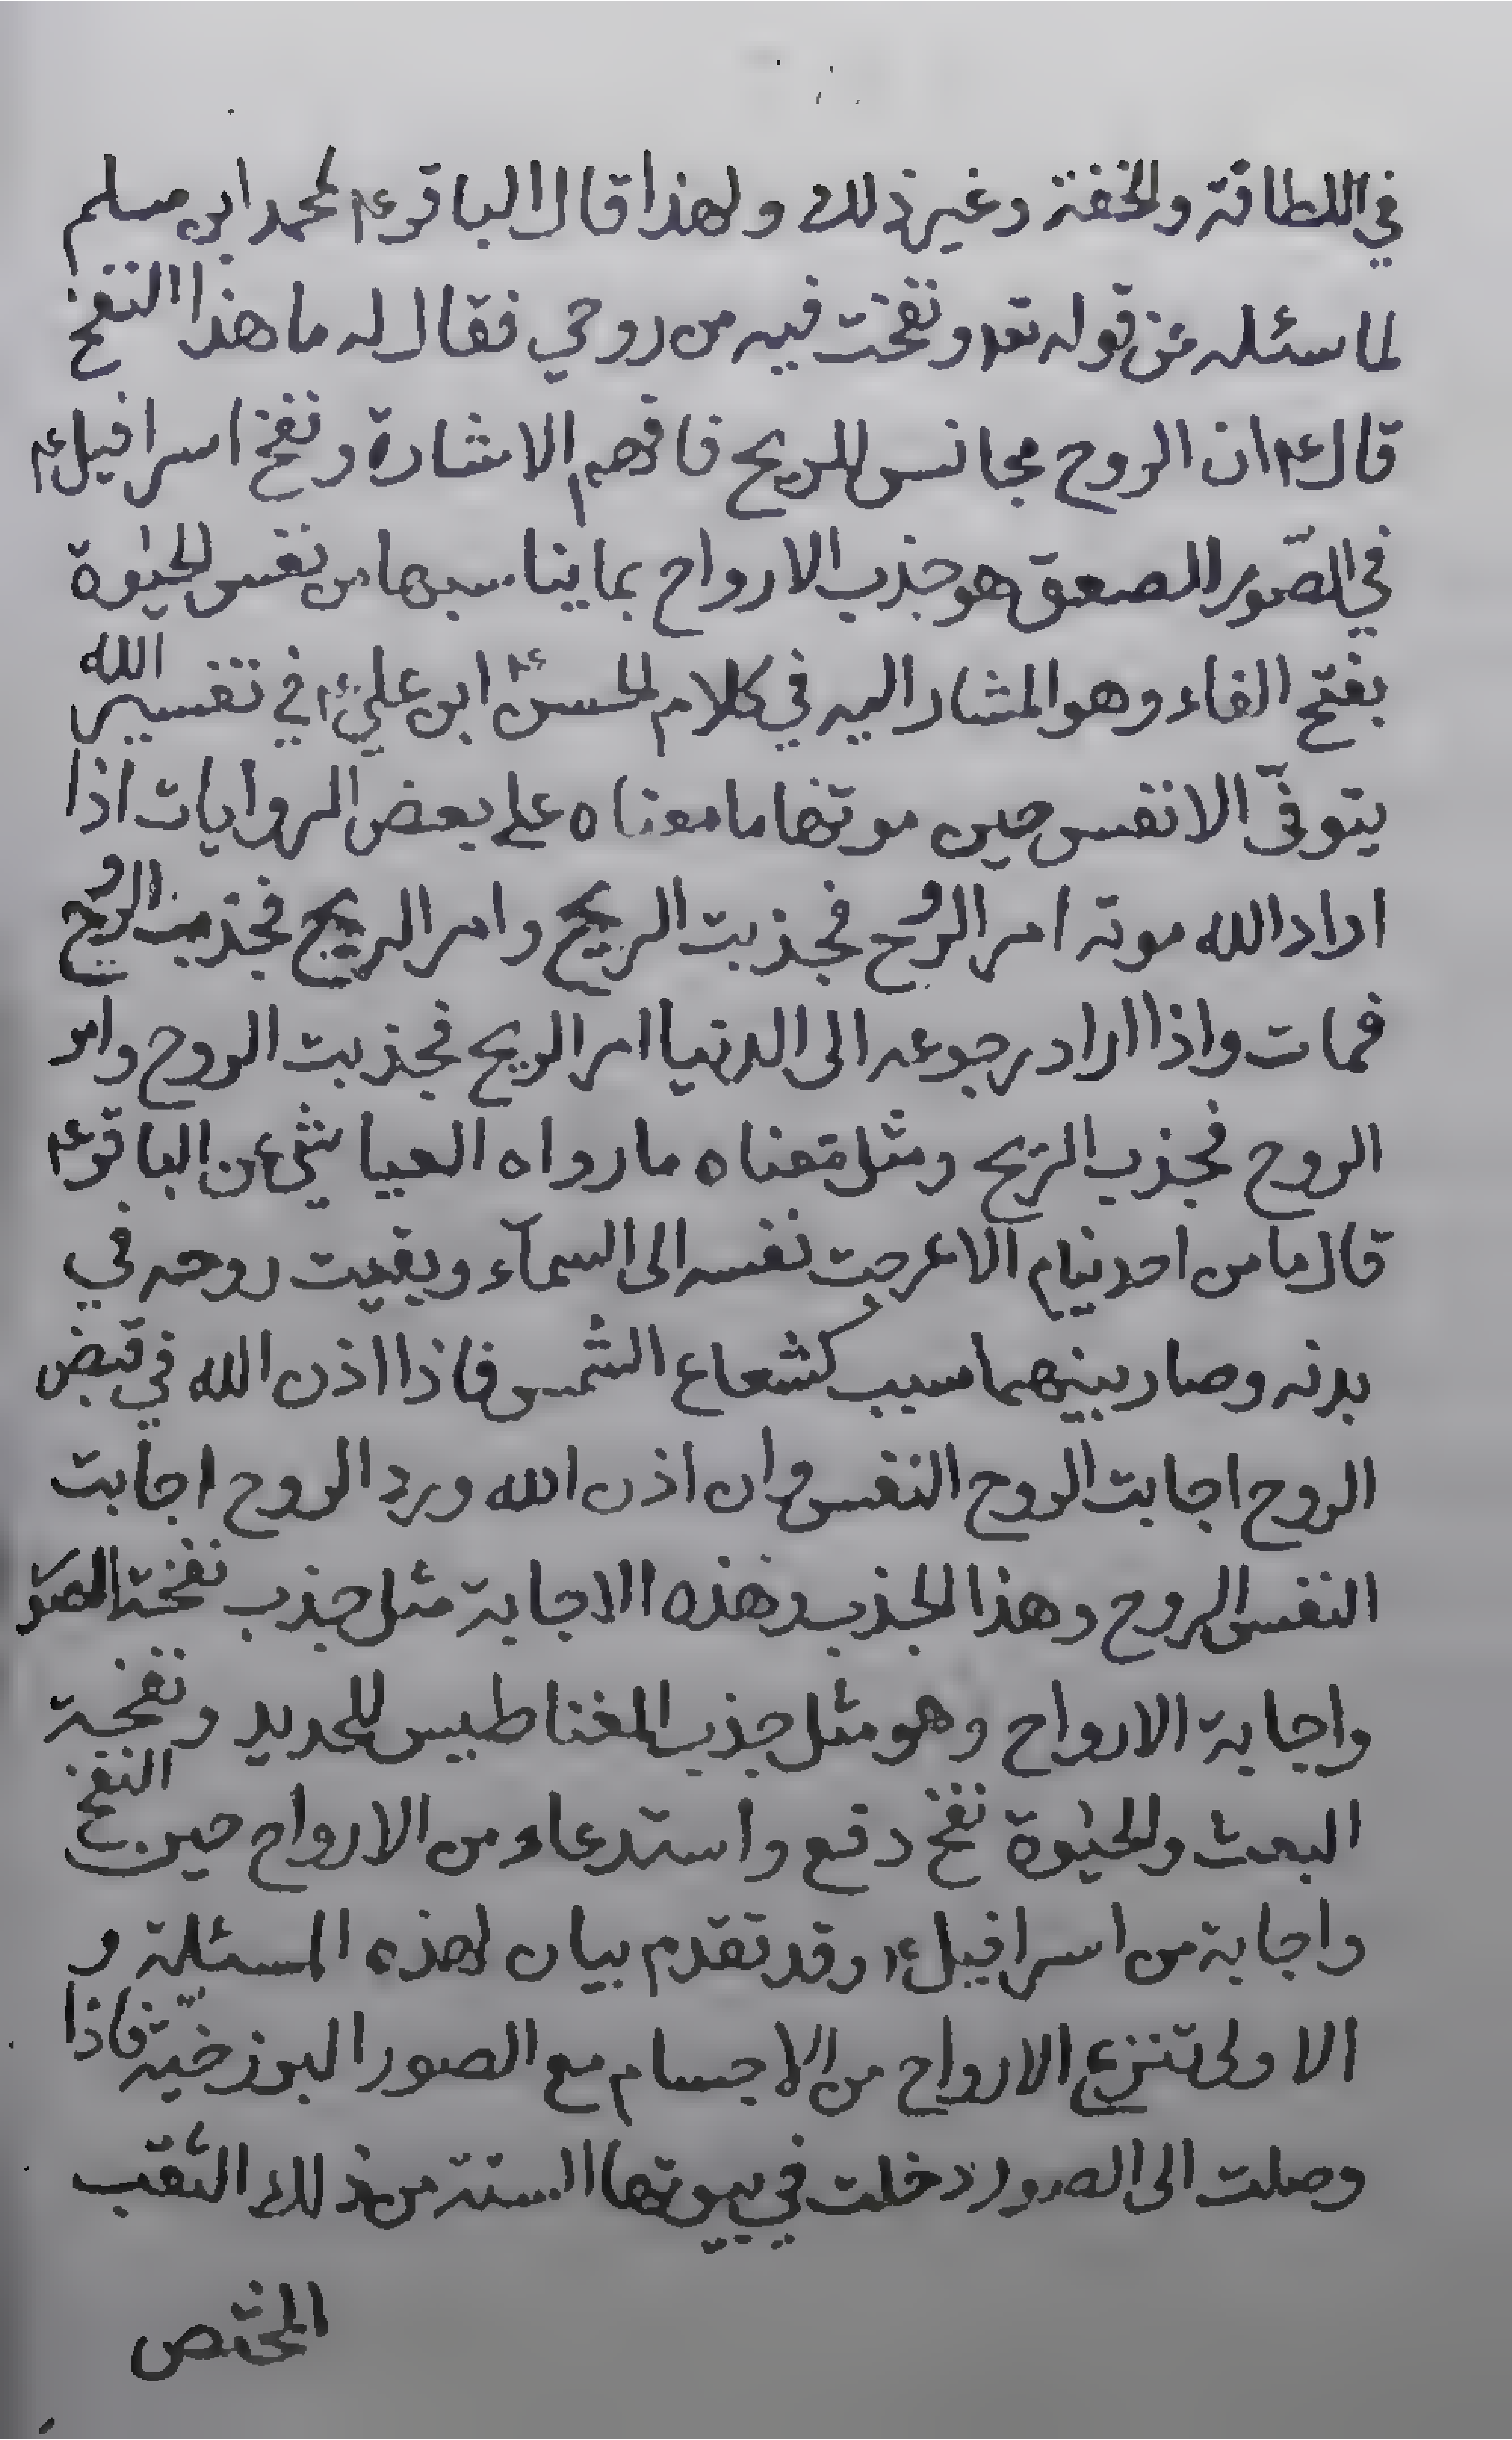 في اللطافة والخفة وغير ذلك ولهذا قال الباقر ع۴ لمحمد ابن مسلم
لما سئله عن قوله تعه ونفخت فيه من روحي فقال له ما هذا النفخ
قال ع۴ ان الروح مجانس للريح فافهم الاشارة ونفخ اسرافيل ع۴
في الصّور للصعق هو جذب الارواح بما يناسبها من نفس الحيٰوة
بفتح الفاء وهو المشار اليه في كلام الحسن ع۴ ابن علي ع۴ في تفسير الله
يتوفّى الانفس حين موتها ما معناه على بعض الروايات اذا
اراد الله موته امر الروح فجذبت الريح وامر الريح فجذبت الروح
فمات واذا اراد رجوعه الى الدنيا امر الريح فجذبت الروح وامر
الروح فجذب الريح ومثل معناه ما رواه العياشي عن الباقر ع۴
قال ما من احد ينام الا عرجت نفسه الى السمآء وبقيت روحه في
بدنه وصار بينهما سبب كشعاع الشمس فاذا اذن الله في قبض
الروح اجابت الروح النفس وان اذن الله ورد الروح اجابت
النفس الروح وهذا الجذب وهذه الاجابة مثل جذب نفخة الصور
واجابة الارواح وهو مثل جذب المغناطيس للحديد ونفخة
البعث والحيٰوة نفخ دفع واستدعاء من الارواح حين النفخ
واجابة من اسرافيل ع۴ وقد تقدم بيان لهذه المسئلة و
الاولى تنزع الارواح من الاجسام مع الصور البرزخيّة فاذا
وصلت الى الصور دخلت في بيوتها الستة من ذلك الثقب
المختص